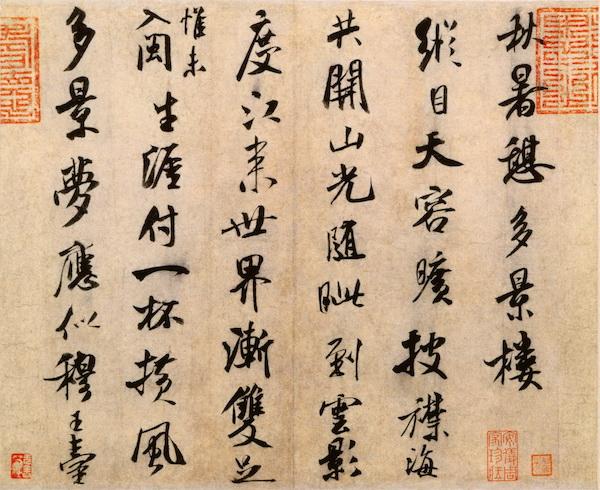 秋暑憩多景樓
縱目天容曠披襟海
共開山光隨眦到雲影
度江来世界漸雙足
惟未
入閩生涯付一杯横風
多景夢應似穆王臺